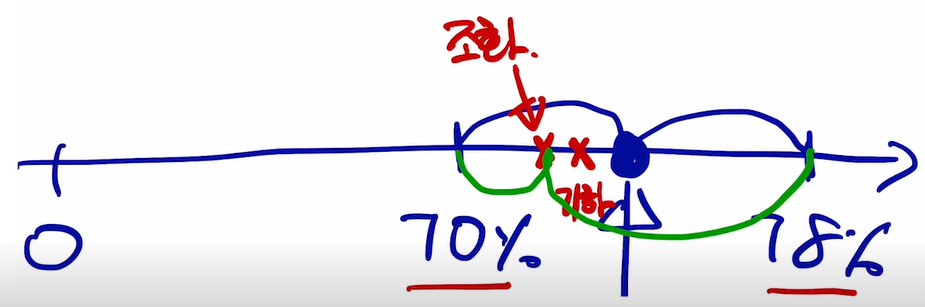 조화.
기하
0 70% 78%